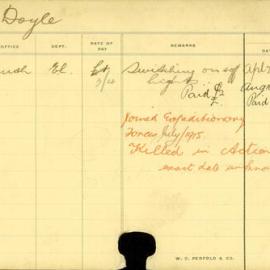 Doyle
OFFICE DEPT. RATE OF PAY REMARKS DA
El. Switching on & off Apl
lights Aug
Paid Paid
Joined Expeditionary
Forces, July/1915.
Killed in Action
exact date unknow
W. C. PENFOLD & CO.